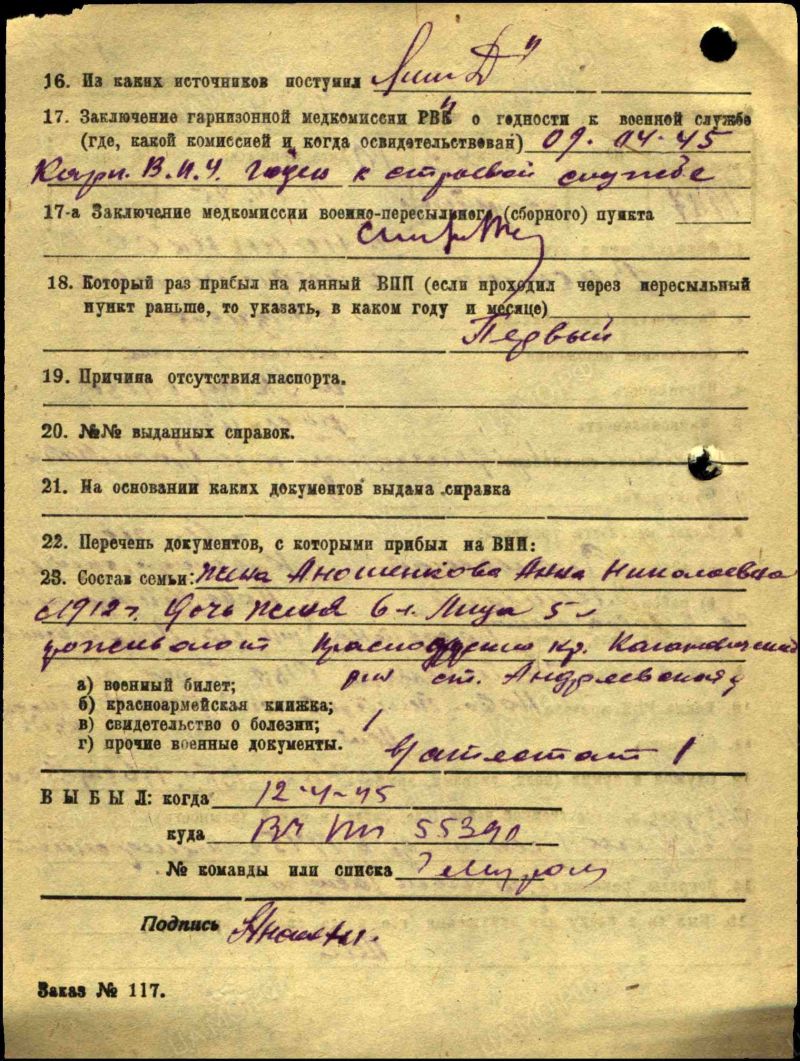 16. Из каких источников поступил
17. Заключение гарнизонной медкомиссии РВК о годности к военной службе
(где, какой комиссией и когда освидетельствован) 09.04.45
В.П.Ч. годен к строевой службе
17-а Заключение медкомиссии военно-пересыльного (сборного) пункта
18. Который раз прибыл на данный ВПП (если проходил через пересыльный
пункт раньше, то указать, в каком году и месяце)
Первый
19. Причина отсутствия паспорта.
20. №№ выданных справок.
21. На основании каких документов выдана справка
22. Перечень документов, с которыми прибыл на ВПП:
23. Состав семьи: жена Аношенкова Анна Николаевна
с 1912 г. дочь Женя 6 л. 5 л
проживают Краснодарский кр. Кагановический
а) военный билет; рн ст. Андреевская
б) красноармейская книжка;
в) свидетельство о болезни; 1
г) прочие военные документы.
аттестат 1
ВЫБЫЛ: когда 12-4-45
куда ВЧ ПП 55390
№ команды или списка
Подпись
Заказ № 117.